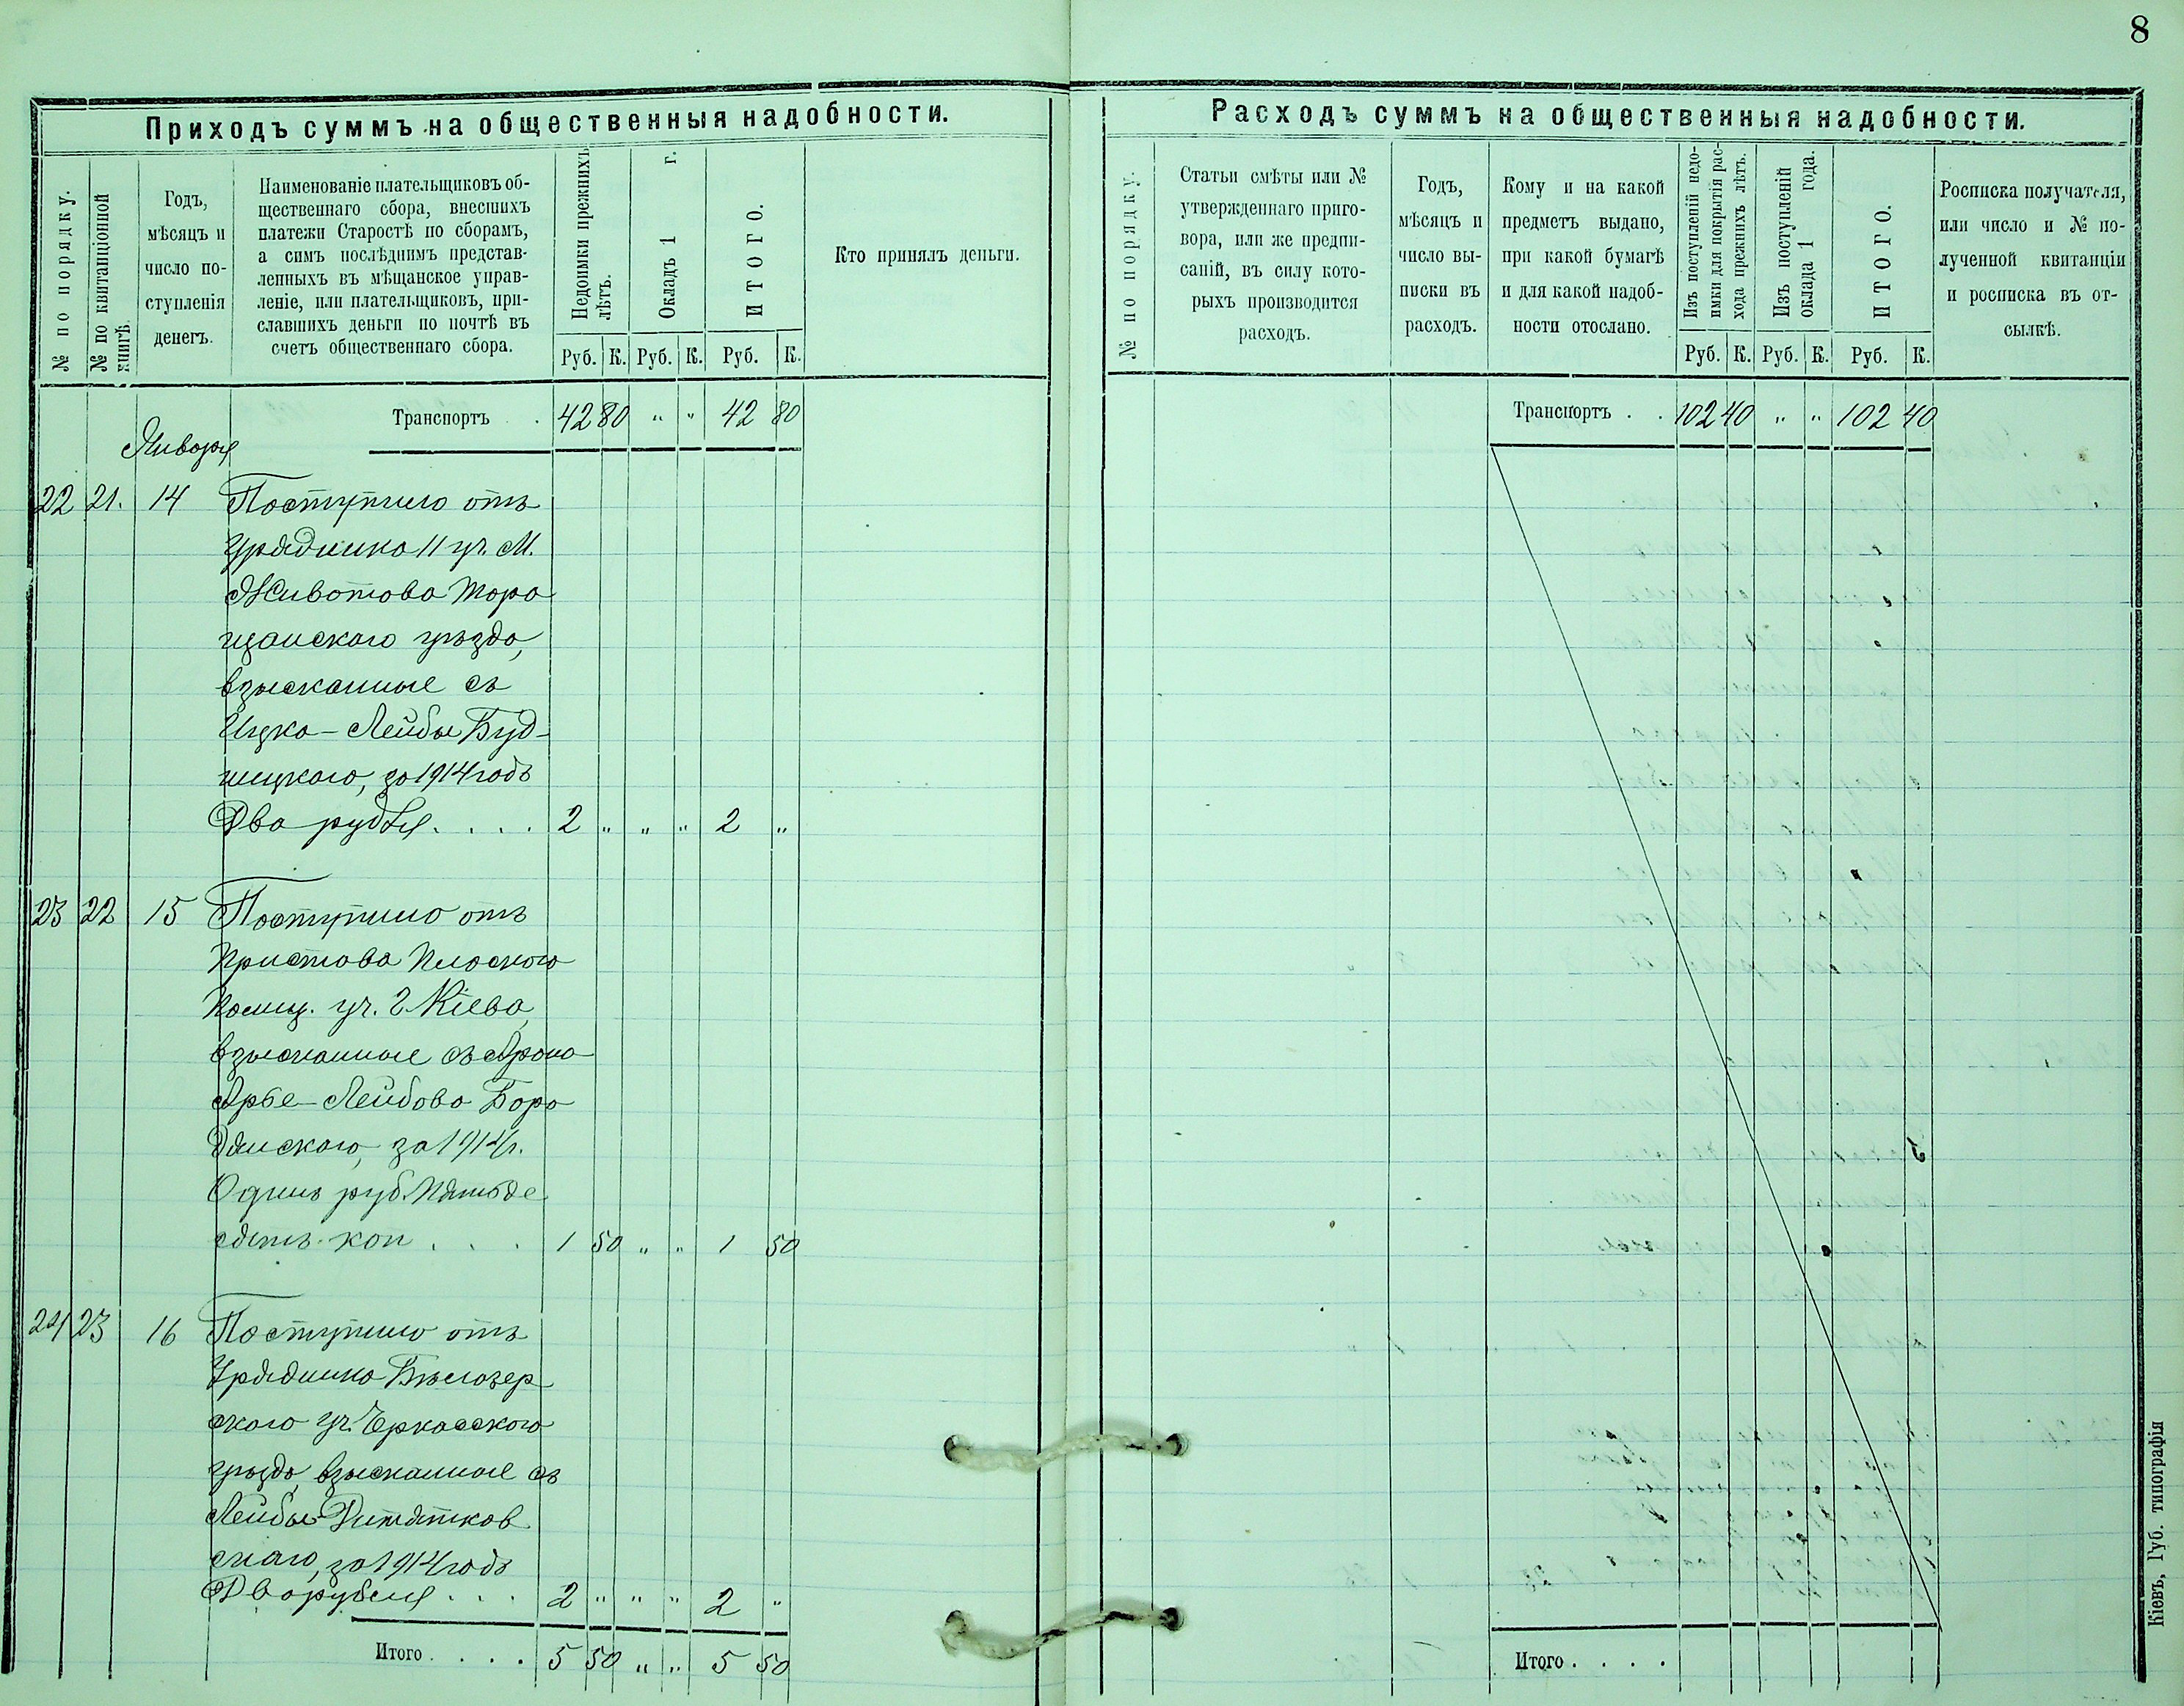 8
Приходъ суммъ на общественныя надобности.
№ по порядку.
№ по квитанціонной книгѣ.
Годъ,
мѣсяцъ и
число по-
ступленія
денегъ.
Наименованіе плательщиковъ об-
щественнаго сбора, внесшихъ
платежи Старостѣ по сборамъ,
а симъ послѣднимъ представ-
ленныхъ въ мѣщанское управ-
леніе, или плательщиковъ, при-
славшихъ деньги по почтѣ въ
счетъ общественнаго сбора.
Недоимки прежнихъ
лѣтъ.
Окладъ 1 г.
ИТОГО.
Руб. К. Руб. К. Руб. К.
Кто принялъ деньги.
Транспортъ . . 42 80 " " 42 80
Января
22 21. 14 Поступило отъ
Урядника 11 уч. М.
Животова Тара
щанскаго уѣзда,
взысканные съ
Ицка-Лейбы Буд-
ницкаго, за 1914 годъ
Два рубля. . . . 2 " " " 2 "
23 22 15 Поступило отъ
Пристава Плоскаго
Полиц. уч. г. Кіева,
взысканные съ Арона
Арье-Лейбова Боро
дянскаго, за 1914 г.
Одинъ руб. Пятьде
сятъ коп . . . 1 50 " " 1 50
24 23 16 Поступило отъ
Урядника Бѣлозер
скаго уч. Черкасскаго
уѣзда, взысканные съ
Лейбы Дитятков
скаго, за 1914 годъ
Два рубля . . . 2 " " " 2 "
Итого . . . . 5 50 " " 5 50
Расходъ суммъ на общественныя надобности.
№ по порядку.
Статьи смѣты или №
утвержденнаго приго-
вора, или же предпи-
саній, въ силу кото-
рыхъ производится
расходъ.
Годъ,
мѣсяцъ и
число вы-
писки въ
расходъ.
Кому и на какой
предметъ выдано,
при какой бумагѣ
и для какой надоб-
ности отослано.
Изъ поступленій недо-
имки для покрытія рас-
хода прежнихъ лѣтъ.
Изъ поступленій
оклада 1 года.
ИТОГО.
Руб. К. Руб. К. Руб. К.
Росписка получателя,
или число и № по-
лученной квитанціи
и росписка въ от-
сылкѣ.
Транспортъ . . 102 40 " " 102 40
Итого . . . .
Кіевъ, Губ. типографія